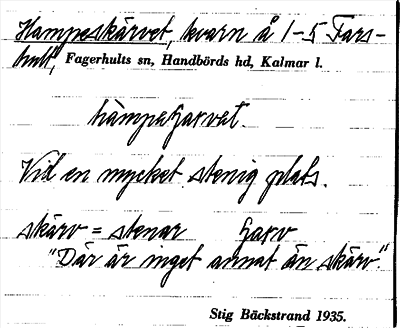 Hampeskärvet, kvarn å 1-5 Fars-
hult, Fagerhults sn, Handbörds hd, Kalmar l.
hàmpaʃarvət.
Vid en mycket stenig plats.
skärv = stenar ʃarv
"Där är inget annat än skärv."
Stig Bäckstrand 1935.